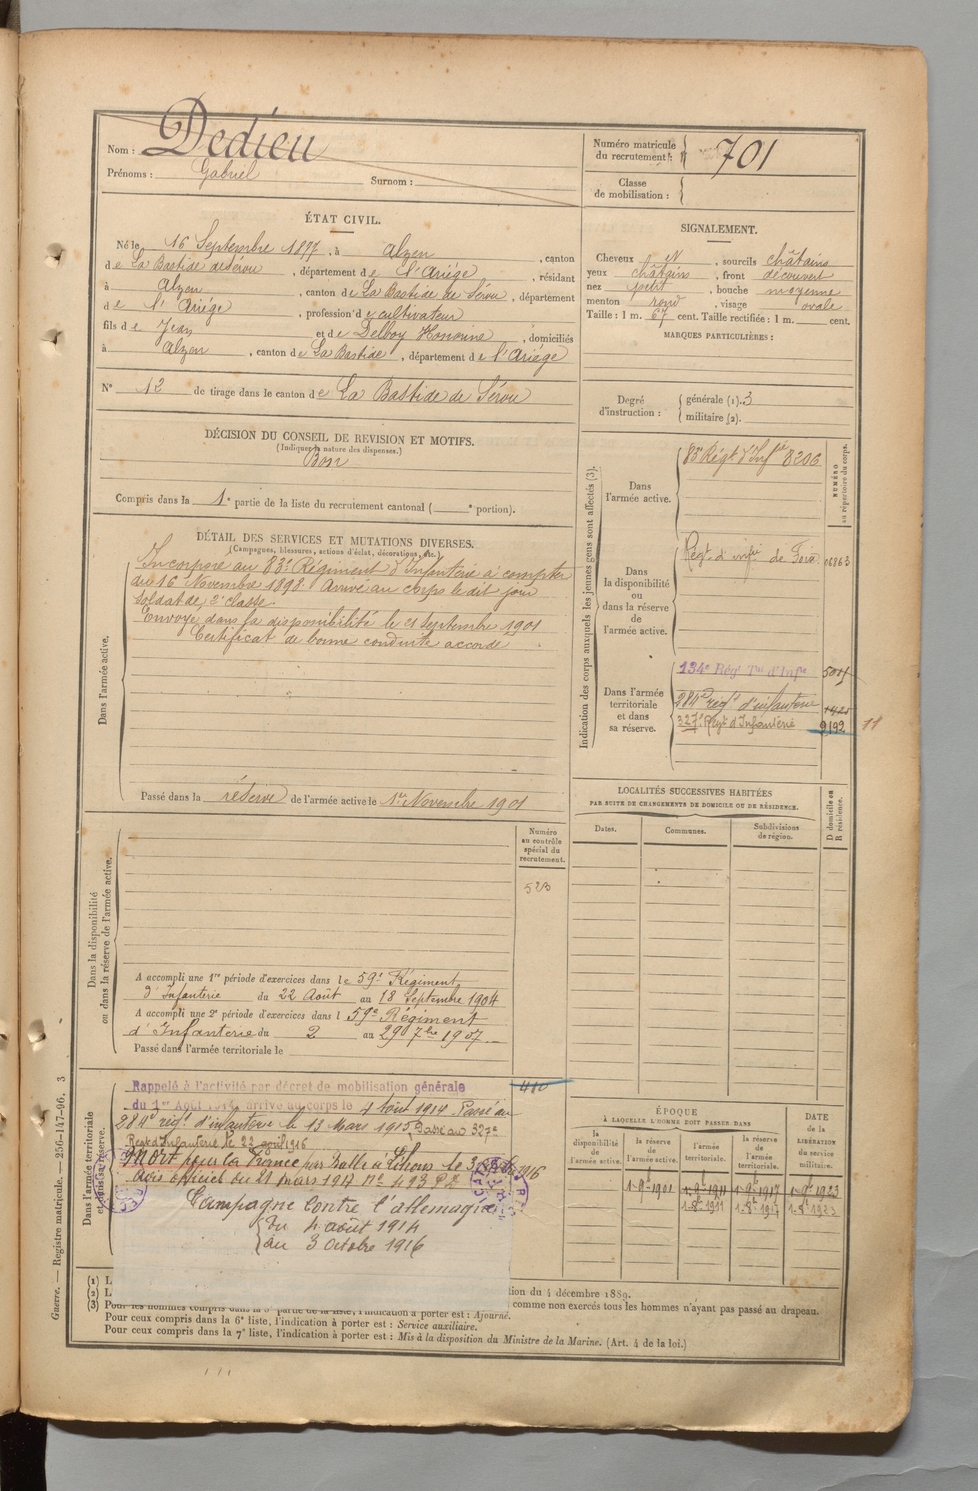 Nom : Dedieu
Prénoms : Gabriel Surnom :
Numéro matricule
du recrutement : 701
Classe
de mobilisation :
ÉTAT CIVIL.
Né le 16 Septembre 1877, à Alzen, canton
de La Bastide de Sérou, département de l'Ariége, résidant
à Alzen, canton de La Bastide de Sérou, département
de l'Ariége, profession de cultivateur
fils de Jean et de Delboy Honorine, domiciliés
à Alzen, canton de La Bastide, département de l'Ariége
N° 12 de tirage dans le canton de La Bastide de Sérou
SIGNALEMENT.
Cheveux N, sourcils châtains
yeux châtains, front découvert
nez petit, bouche moyenne
menton rond, visage ovale
Taille : 1 m. 67 cent. Taille rectifiée : 1 m. cent.
MARQUES PARTICULIÈRES :
Degré
d'instruction :
générale (1). 3
militaire (2).
DÉCISION DU CONSEIL DE REVISION ET MOTIFS.
(Indiquer la nature des dispenses.)
Bon
Compris dans la 1e partie de la liste du recrutement cantonal ( e portion).
DÉTAIL DES SERVICES ET MUTATIONS DIVERSES.
(Campagnes, blessures, actions d'éclat, décorations, etc.)
Dans l'armée active.
Incorporé au 83e Régiment d'Infanterie à compter
du 16 Novembre 1898. Arrivé au corps le dit jour
Soldat de 2e classe.
Envoyé dans la disponibilité le 21 Septembre 1901
Certificat de bonne conduite accordé
Passé dans la réserve de l'armée active le 1er Novembre 1901
Indication des corps auxquels les jeunes gens sont affectés (3).
NUMÉRO
au répertoire du corps.
Dans
l'armée active.
83e Régt d'Infie 8206
Dans
la disponibilité
ou
dans la réserve
de
l'armée active.
Régt d'infie de Foix 06863
Dans l'armée
territoriale
et dans
sa réserve.
134e Régt Tal d'Infie
284e régt d'infanterie 1425
327e Régt d'Infanterie 9192 11
LOCALITÉS SUCCESSIVES HABITÉES
PAR SUITE DE CHANGEMENTS DE DOMICILE OU DE RÉSIDENCE.
Dates. Communes. Subdivisions
de région.
D domicile ou
R résidence.
Dans la disponibilité
ou dans la réserve de l'armée active.
Numéro
au contrôle
spécial du
recrutement.
523
A accompli une 1re période d'exercices dans le 59e Régiment
d'Infanterie du 22 Août au 18 Septembre 1904
A accompli une 2e période d'exercices dans l 59e Régiment
d'Infanterie du 2 au 29 7bre 1907
Passé dans l'armée territoriale le
Dans l'armée territoriale
et dans sa réserve.
Rappelé à l'activité par décret de mobilisation générale 410
du 1er Août 1914 arrivé au corps le 4 Août 1914 Passé au
284e régt d'infanterie le 13 Mars 1915 Passé au 327e
Regt d'Infanterie le 22 avril 1916
Mort pour la France par balle à Lihons le 3 1916
Avis officiel du 21 mars 1917 N° 493 P2
Campagne contre l'allemagne
du 4 août 1914
au 3 Octobre 1916
ÉPOQUE
À LAQUELLE L'HOMME DOIT PASSER DANS
DATE
de la
LIBÉRATION
du service
militaire.
la
disponibilité
de
l'armée active.
la réserve
de
l'armée active.
l'armée
territoriale.
la réserve
de
l'armée
territoriale.
1-9e-1901 1-9e-1911 1-9e-1917 1-9e-1923
1-8e-1911 1-8e-1917 1-8e-1923
(1) L
(2) L tion du 4 décembre 1889.
(3) Pour les hommes compris dans la 5e partie de la liste, l'indication à porter est : Ajourné. comme non exercés tous les hommes n'ayant pas passé au drapeau.
Pour ceux compris dans la 6e liste, l'indication à porter est : Service auxiliaire.
Pour ceux compris dans la 7e liste, l'indication à porter est : Mis à la disposition du Ministre de la Marine. (Art. 4 de la loi.)
Guerre. — Registre matricule. — 256-147-96. 3